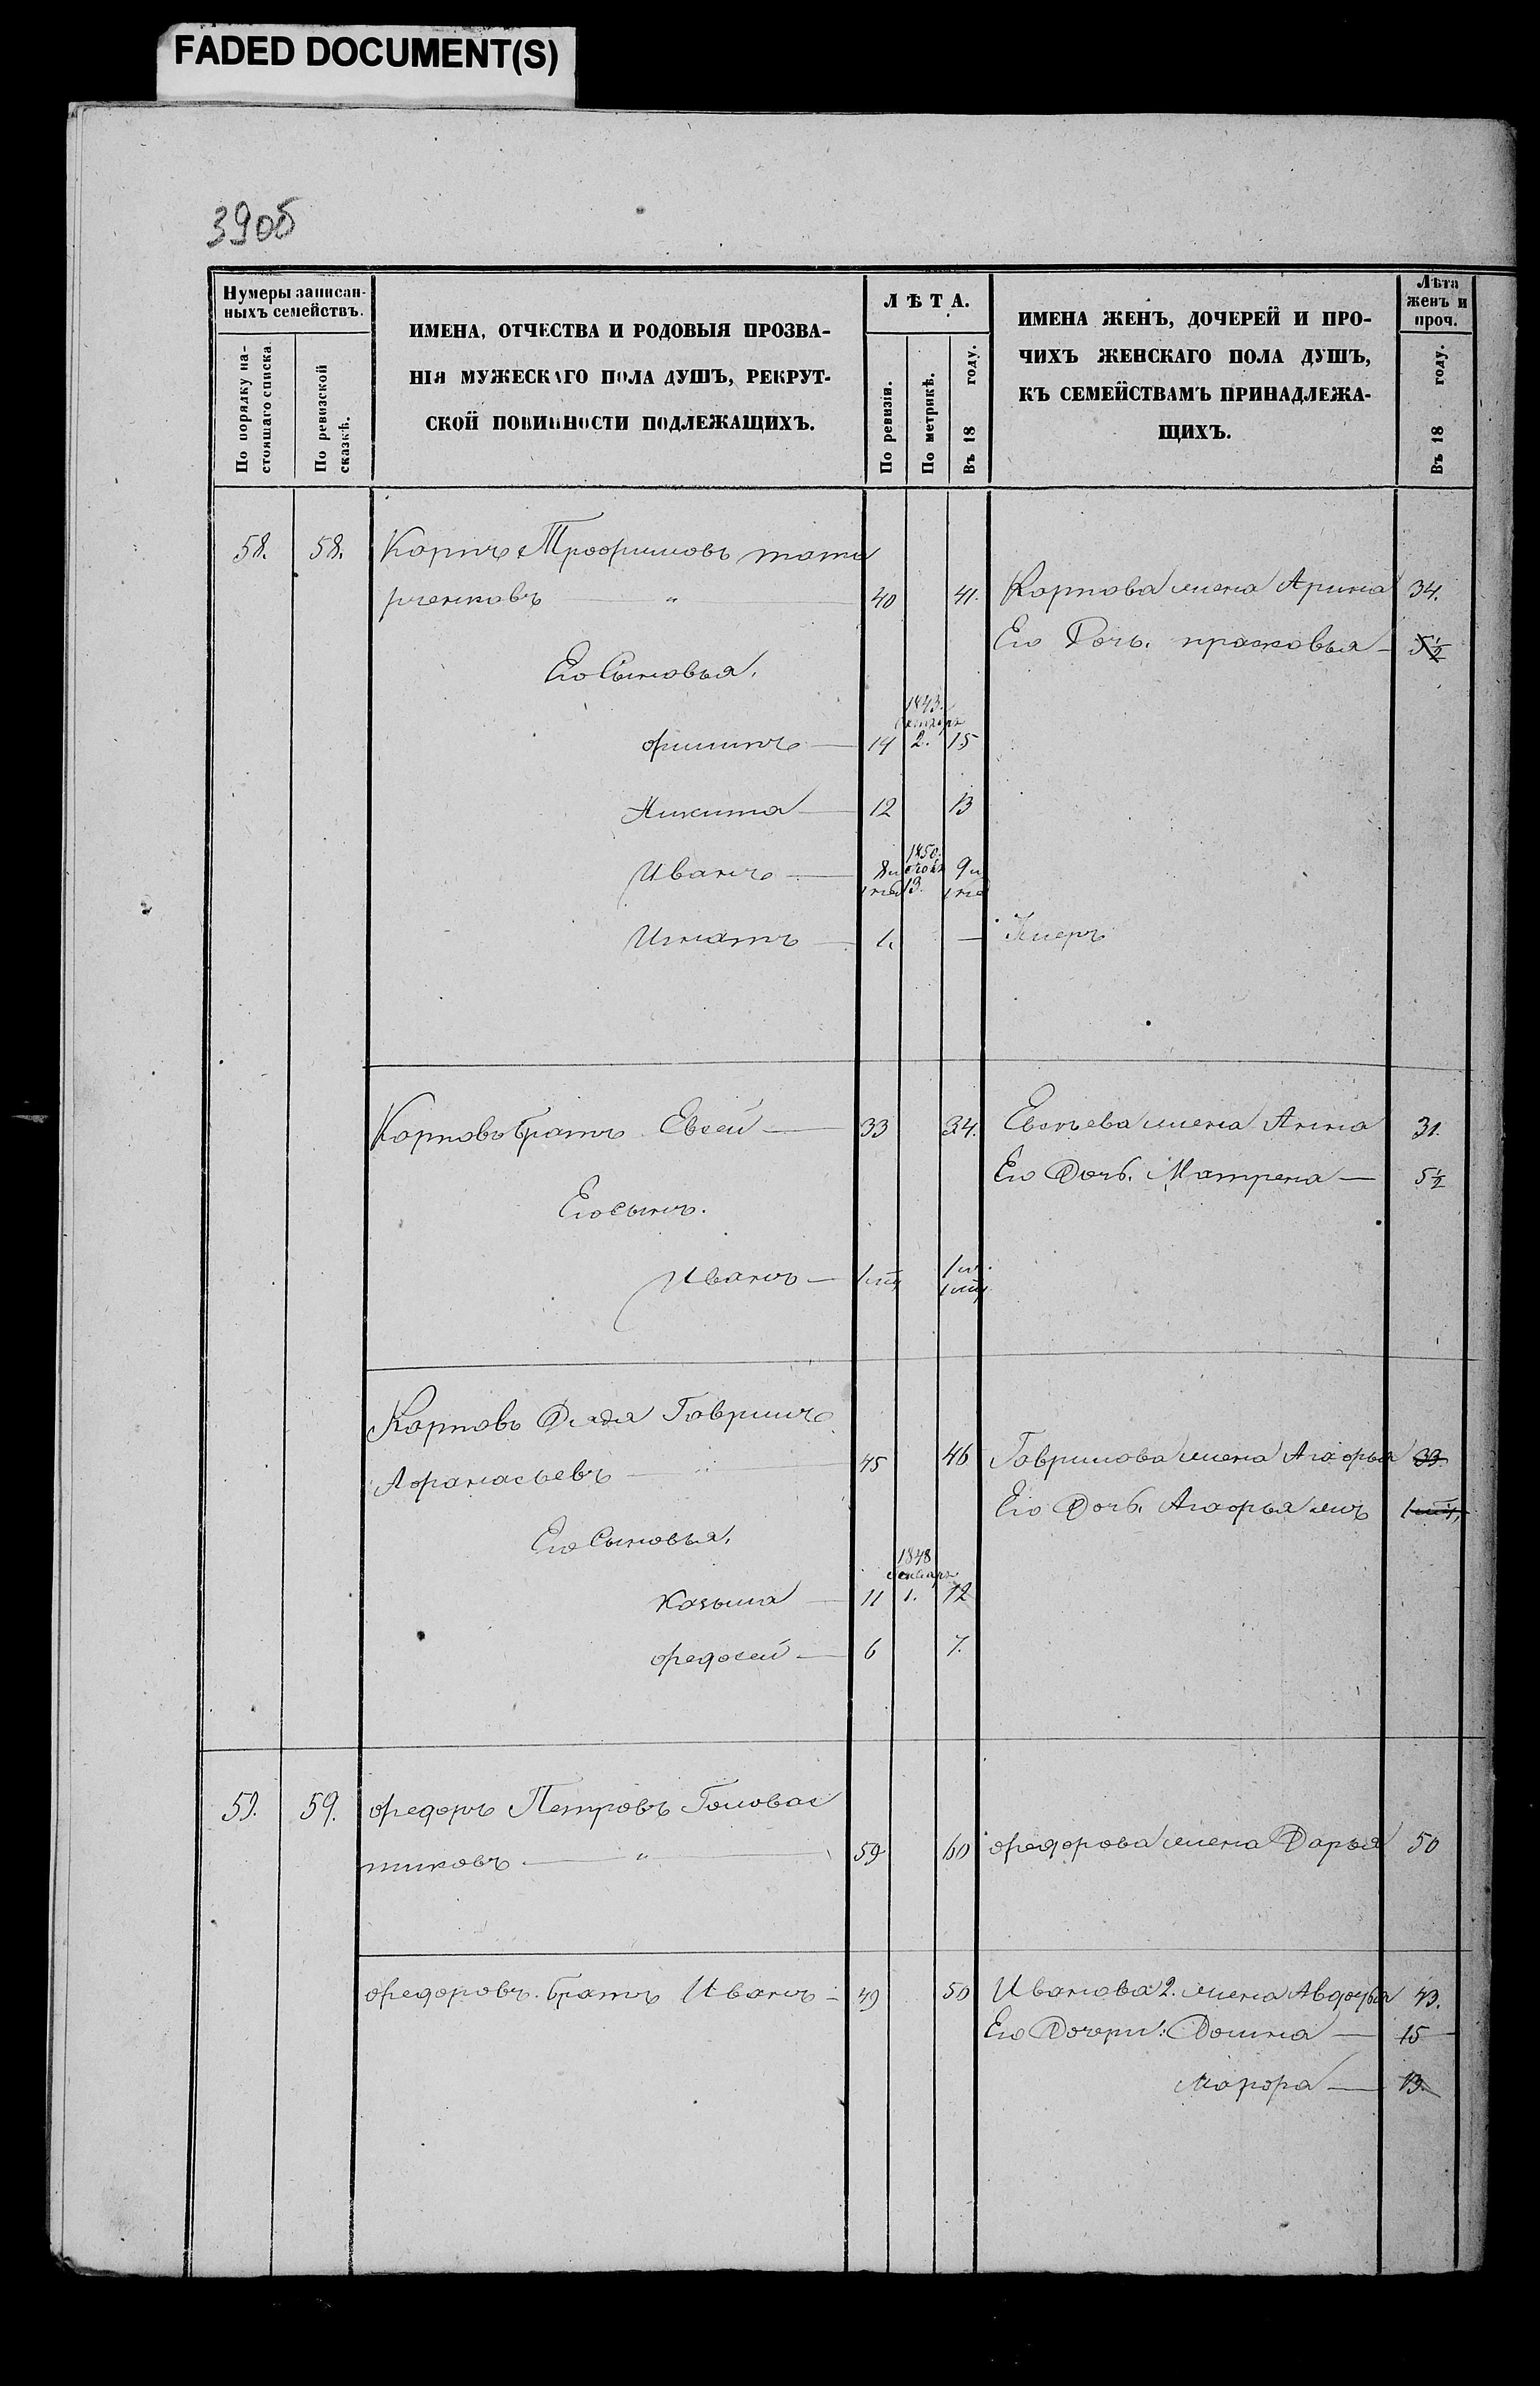 FADED DOCUMENT(S)
39об
Нумеры записан-
ныхъ семействъ.
По порядку на-
стоящаго списка
По ревизской
сказкѣ.
ИМЕНА, ОТЧЕСТВА И РОДОВЫЯ ПРОЗВА-
НІЯ МУЖЕСКАГО ПОЛА ДУШЪ, РЕКРУТ-
СКОЙ ПОВИННОСТИ ПОДЛЕЖАЩИХЪ.
ЛѢТА.
По ревизіи.
По метрикѣ.
Въ 18 году.
ИМЕНА ЖЕНЪ, ДОЧЕРЕЙ И ПРО-
ЧИХЪ ЖЕНСКАГО ПОЛА ДУШЪ,
КЪ СЕМЕЙСТВАМЪ ПРИНАДЛЕЖА-
ЩИХЪ.
Лѣта
женъ и
проч.
Въ 18 году.
58. 58. Карпъ Трофимовъ
40 41. Карпова жена Арина 34.
Его Дочь. прасковья 5½
Его Сыновья.
1843.
филипъ 14 2. 15
Никита 12 13
1850.
Иванъ 8 13. 9
Игнатъ 1. — Умеръ
Карповъ братъ Евсей 33 34. Евсѣева жена Анна 31.
Его Дочь. Матрена 5½
Его сынъ.
Иванъ 1 1
Карповъ Дядя Гаврилъ
Афанасьевъ 45 46 Гаврилова жена Агафья 33
Его Дочь. Агафья
Его Сыновья.
1848
Козьма 11 1. 12
федосей 6 7.
59. 59. федоръ Петровъ Головас
тиковъ 59 60 федорова жена Дарья 50
федоровъ братъ Иванъ 49 50 Иванова 2. жена Авдотья 43.
Его Дочери: Домна 15
Мавра 13